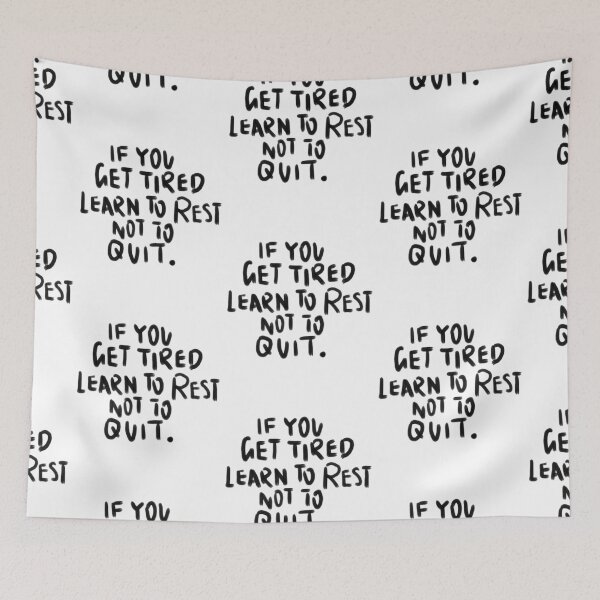 QUIT.
IF YOU
GET TIRED
LEARN TO REST
NOT TO
QUIT.
QUIT.
REST
IF YOU
GET TIRED
LEARN TO REST
NOT TO
QUIT.
IF YOU
GET TIRED
LEARN TO REST
NOT TO
QUIT.
REST
IF YOU
GET TIRED
LEARN TO REST
NOT TO
QUIT.
IF YOU
GET TIRED
LEARN TO REST
NOT TO
QUIT.
IF YOU
GET TIRED
LEARN TO REST
NOT TO
QUIT.
REST
IF YOU
GET TIRED
LEARN TO REST
NOT TO
QUIT
IF YOU
IF YOU